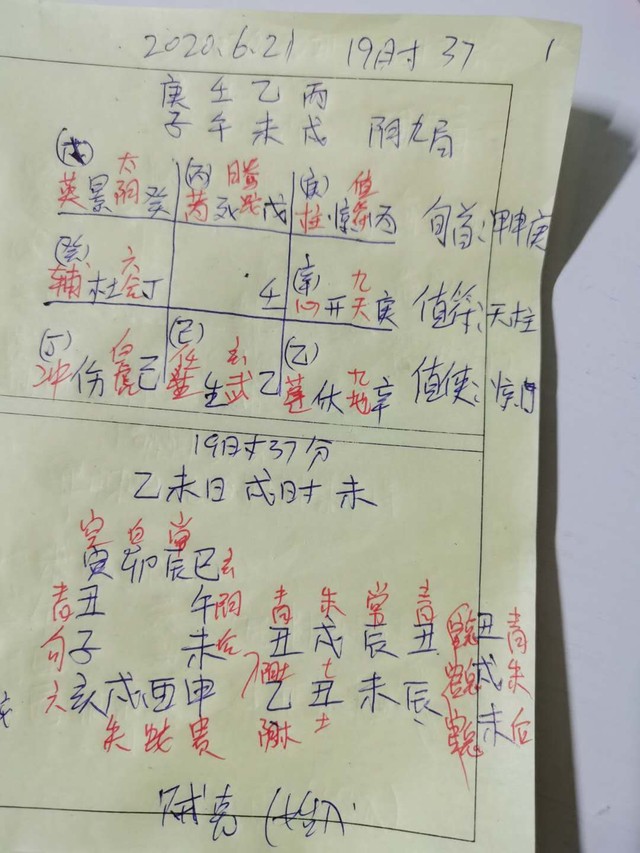 2020.6.21 19时37 1
庚 壬 乙 丙
子 午 未 戌 阴九局
(戊) 太 (丙) 腾 (庚) 值
英 景 阴 癸 芮 死 蛇 戊 柱 惊 符 丙 旬首:甲申庚
(癸) 六 (辛) 九
辅 杜 合 丁 壬 心 开 天 庚 值符:天柱
(丁) 白 (己) 玄 (乙) 九
冲 伤 虎 己 任 生 武 乙 蓬 休 地 辛 值使:惊门
19时37分
乙未日 戌时 未
空 白 常
寅 卯 辰 巳 玄
青 丑 午 阴 青 朱 常 青
勾 子 未 后 丑 戌 辰 丑 丑 青
六 亥 戌 酉 申 乙 丑 未 辰 戌 朱
朱 蛇 贵 未 后